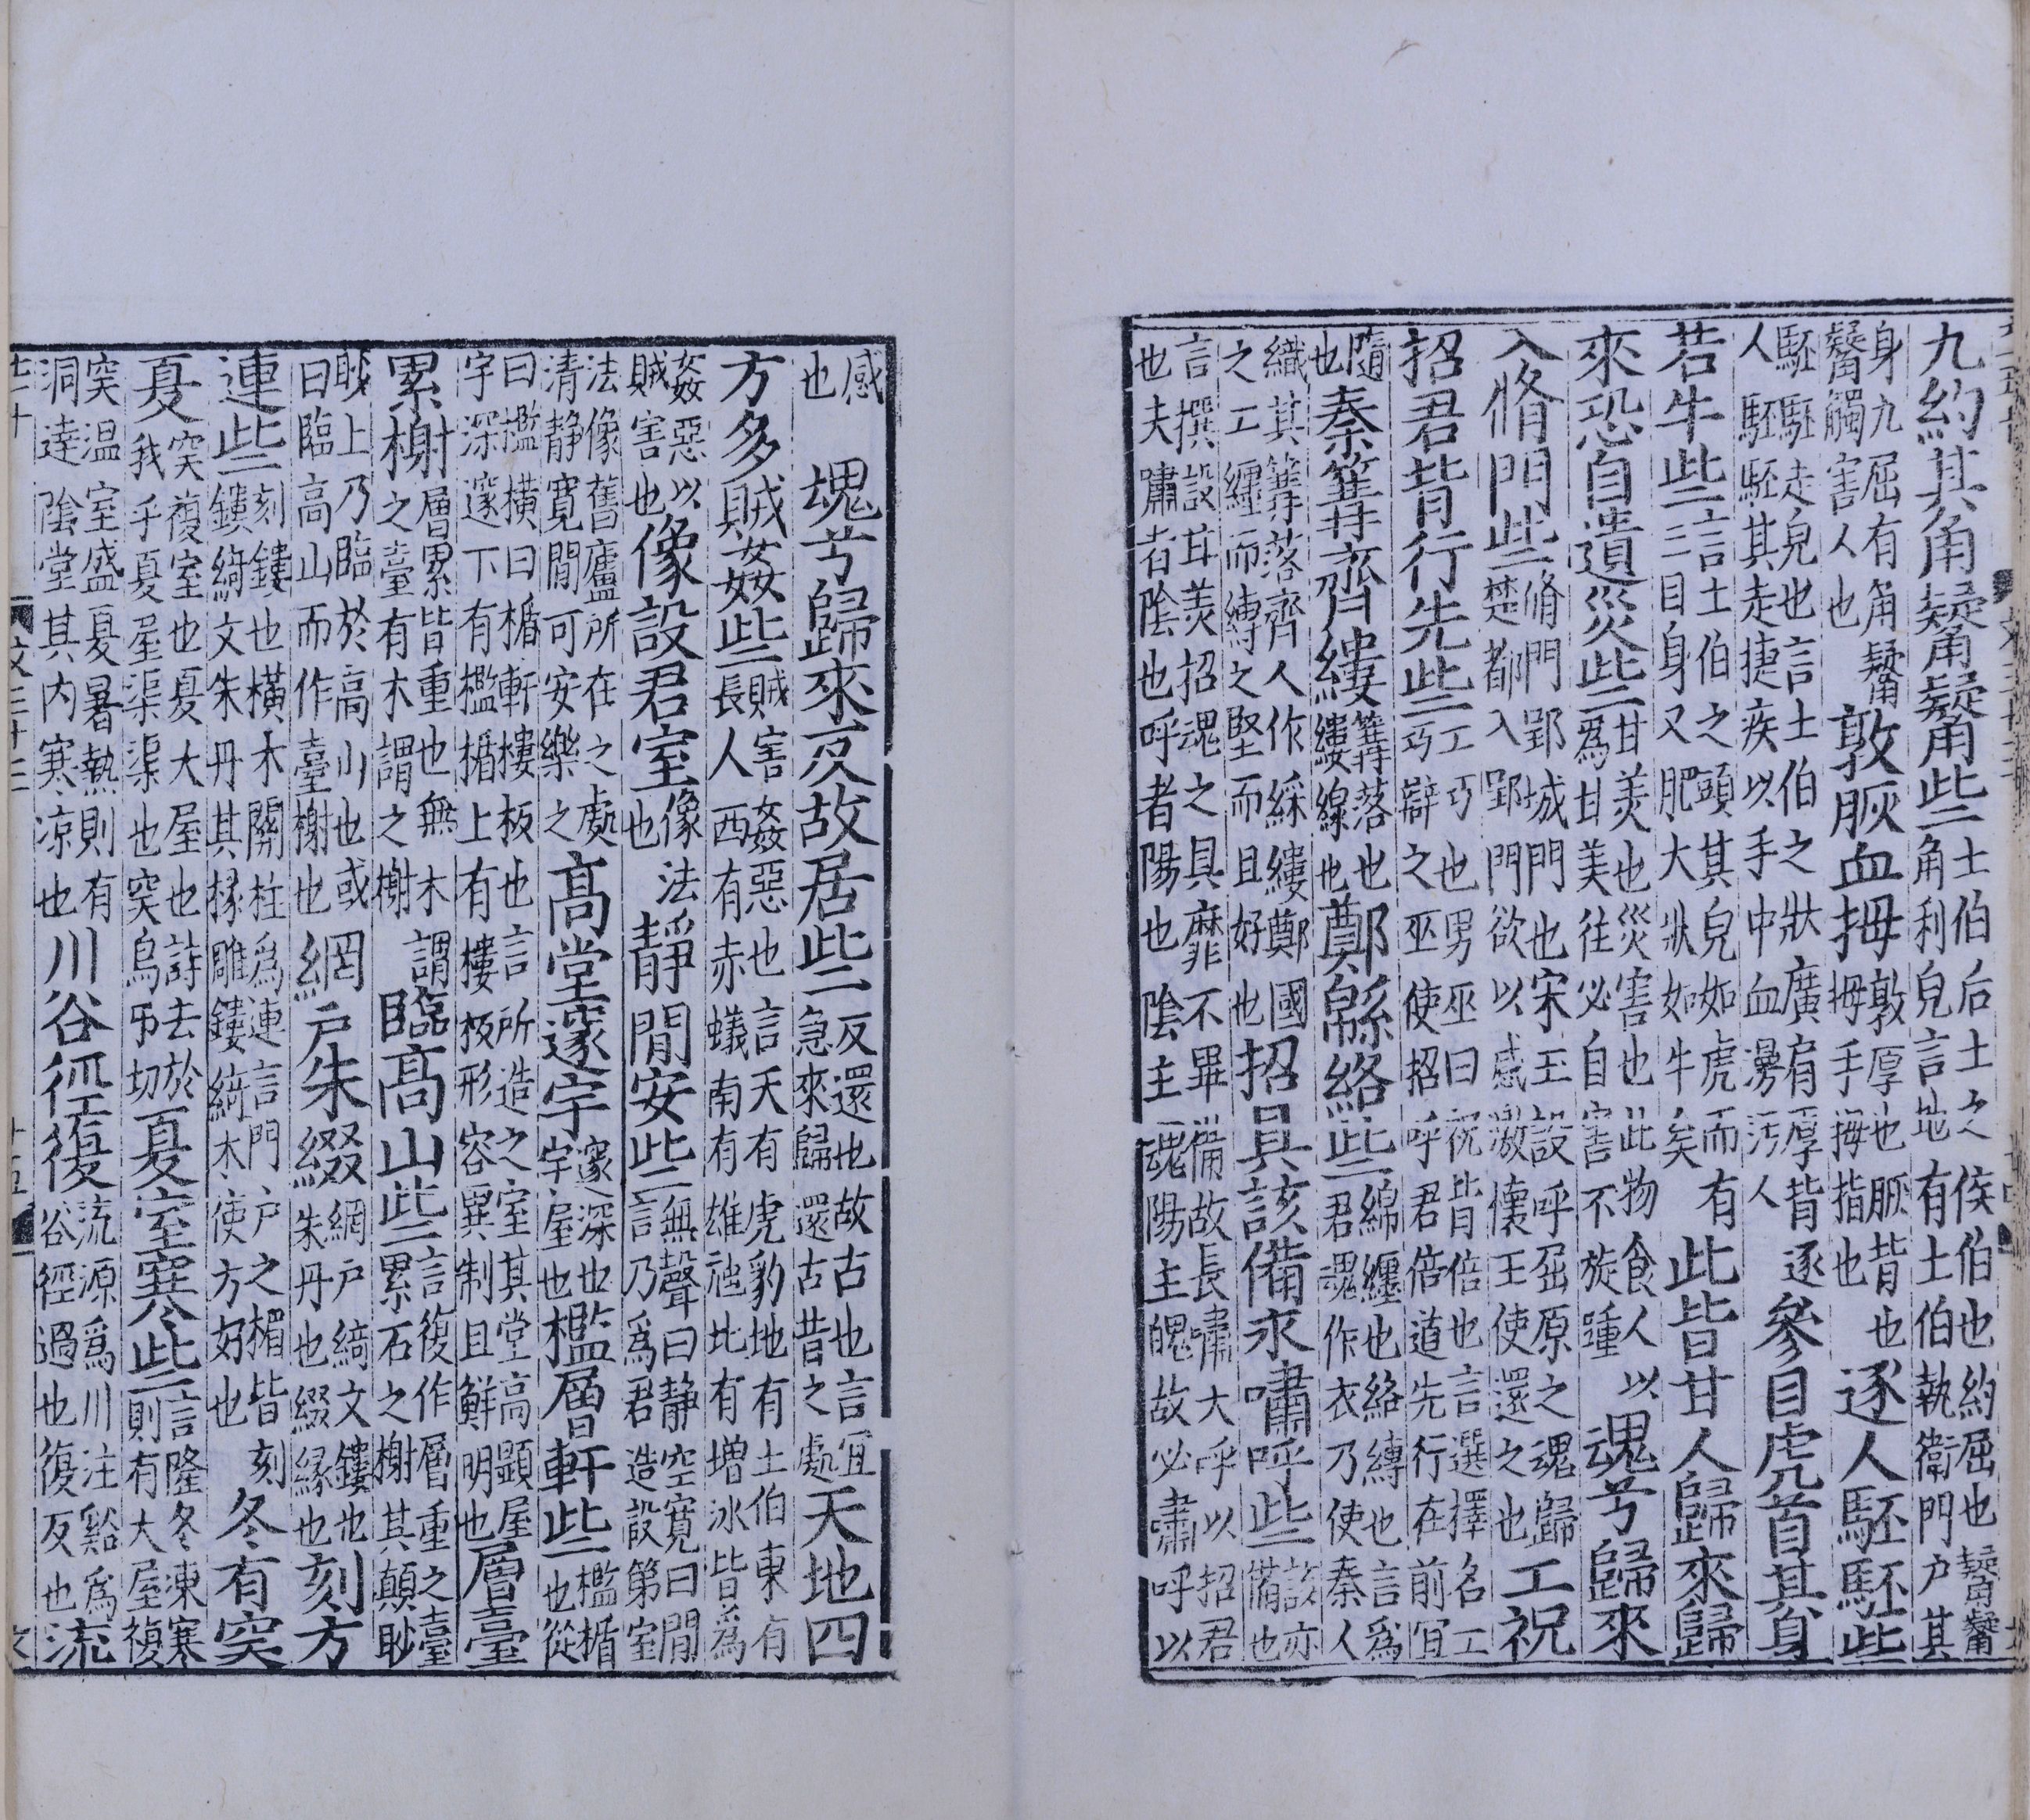 九約其角觺觺些土伯后土之侯伯也約屈也觺觺角利皃言地有土伯執衛門户其
身九屈有角觺觺觸害人也敦脄血拇敦厚也脄背也拇拇手拇指也逐人駓駓些
駓駓走皃也言土伯之狀廣肩厚背逐人駓駓其走捷疾以手中血漫汚人參目虎首其身
若牛些言土伯之頭其皃如虎而有三目身又肥大狀如牛矣此皆甘人歸來歸
來恐自遺災些甘美也災害也此物食人以爲甘美往必自害不旋踵魂兮歸來
入脩門些脩門郢城門也宋玉設呼屈原之魂歸楚都入郢門欲以感激懷王使還之也工祝
招君背行先些工巧也男巫曰祝背倍也言選擇名工巧辯之巫使招呼君倍道先行在前宜
隨也秦篝齊縷篝落也縷線也鄭緜絡些綿纏也絡縛也言爲君魂作衣乃使秦人
織其篝落齊人作綵縷鄭國之工纏而縛之堅而且好也招具該備永嘯呼些該亦備也
言撰設甘美招魂之具靡不畢備故長嘯大呼以招君也夫嘯者陰也呼者陽也陰主魂陽主魄故必嘯呼以
感也魂兮歸來反故居些反還也故古也言宜急來歸還古昔之處天地四
方多賊姦些賊害姦惡也言天有虎豹地有土伯東有長人西有赤蟻南有雄虺北有增冰皆爲
姦惡以賊害也像設君室像法也靜閒安些無聲曰静空寬曰閒言乃爲君造設第室
法像舊廬所在之處清静寬閒可安樂之高堂邃宇邃深也宇屋也檻層軒些檻楯也從
曰檻橫曰楯軒樓板也言所造之室其堂高顯屋宇深邃下有檻楯上有樓板形容異制且鮮明也層臺
累榭層累皆重也無木謂之臺有木謂之榭臨高山些言復作層重之臺累石之榭其顛眇
眇上乃臨於高山也或曰臨高山而作臺榭也網户朱綴網户綺文鏤也朱丹也綴緣也刻方
連些刻鏤也橫木關柱爲連言門户之楣皆刻鏤綺文朱丹其椽雕鏤綺木使方好也冬有突
夏突複室也夏大屋也詩去於我乎夏屋渠渠也突烏弔切夏室寒些言隆冬凍寒則有大屋複
突温室盛夏暑熱則有洞達陰堂其内寒凉也川谷徑復流源爲川注谿爲谷徑過也復反也流
文三十三 十五